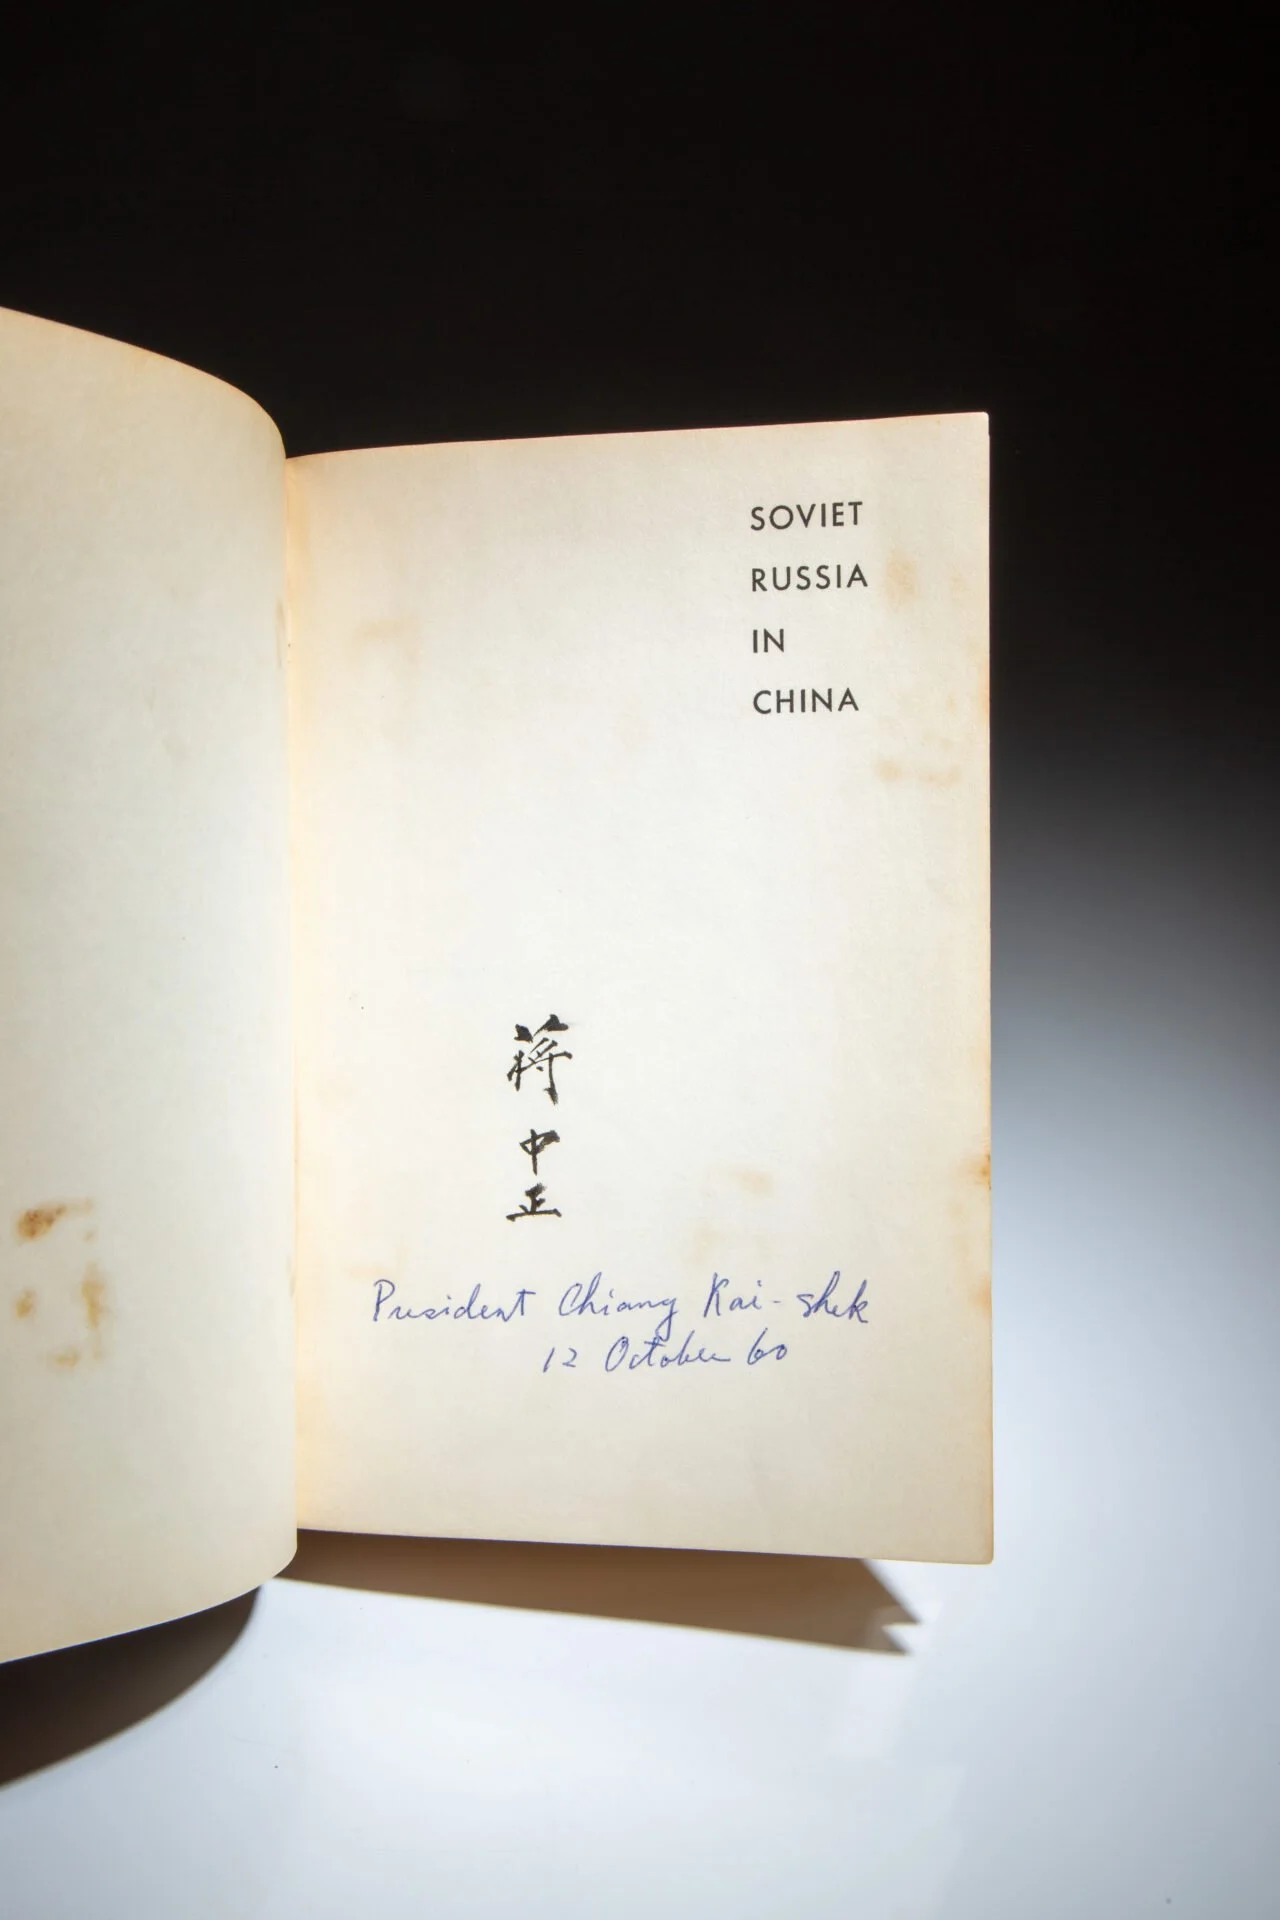 SOVIET
RUSSIA
IN
CHINA
蔣
中
正
President Chiang Kai-shek
12 October 60